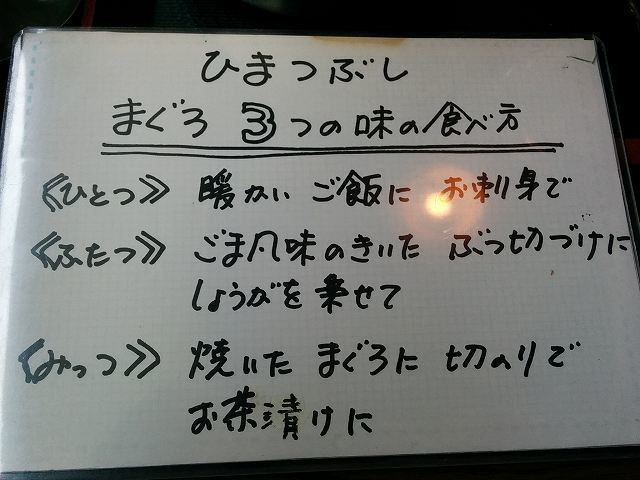 ひまつぶし
まぐろ 3つの味の食べ方
《ひとつ》 暖かい ご飯に お刺身で
《ふたつ》 ごま風味のきいた ぶつ切づけに
しょうがを乗せて
《みっつ》 焼いた まぐろに 切のりで
お茶漬けに